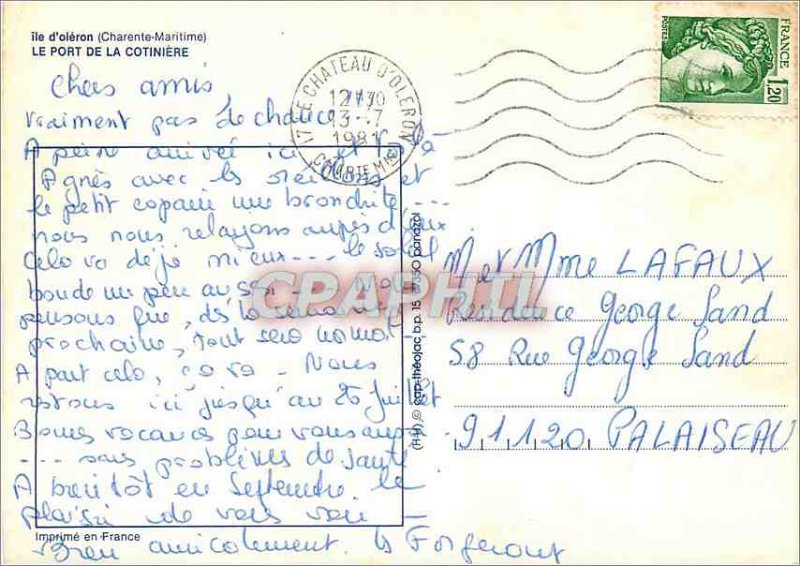 île d'oléron (Charente-Maritime)
LE PORT DE LA COTINIÈRE
Chers amis,
vraiment pas de chance
A peine arrivé ici et voilà
Agnès avec les et
le petit copain une bronchite ---
nous nous relayons auprès d'eux
Celo va déjà mieux --- le soleil
boude un peu aussi. Nous
pensons que, dès la semaine
prochaine, tout sera normal
A part celo, ça va - Nous
restons ici jusqu'au 26 juillet
Bonnes vacances pour vous aussi
--- sans problèmes de santé
A bientôt en Septembre le
plaisir de vous voir -
Bien amicalement. les
Imprimé en France
17 LE CHATEAU D'OLERON
12H30
13-7
1981
CHARTE Mme
FRANCE
1,20
POSTES
M et Mme LAFAUX
Résidence George Sand
58 Rue George Sand
91120 PALAISEAU
(H-H) © cap-théojac b.p. 15 87350 panazol
CPAPHIL